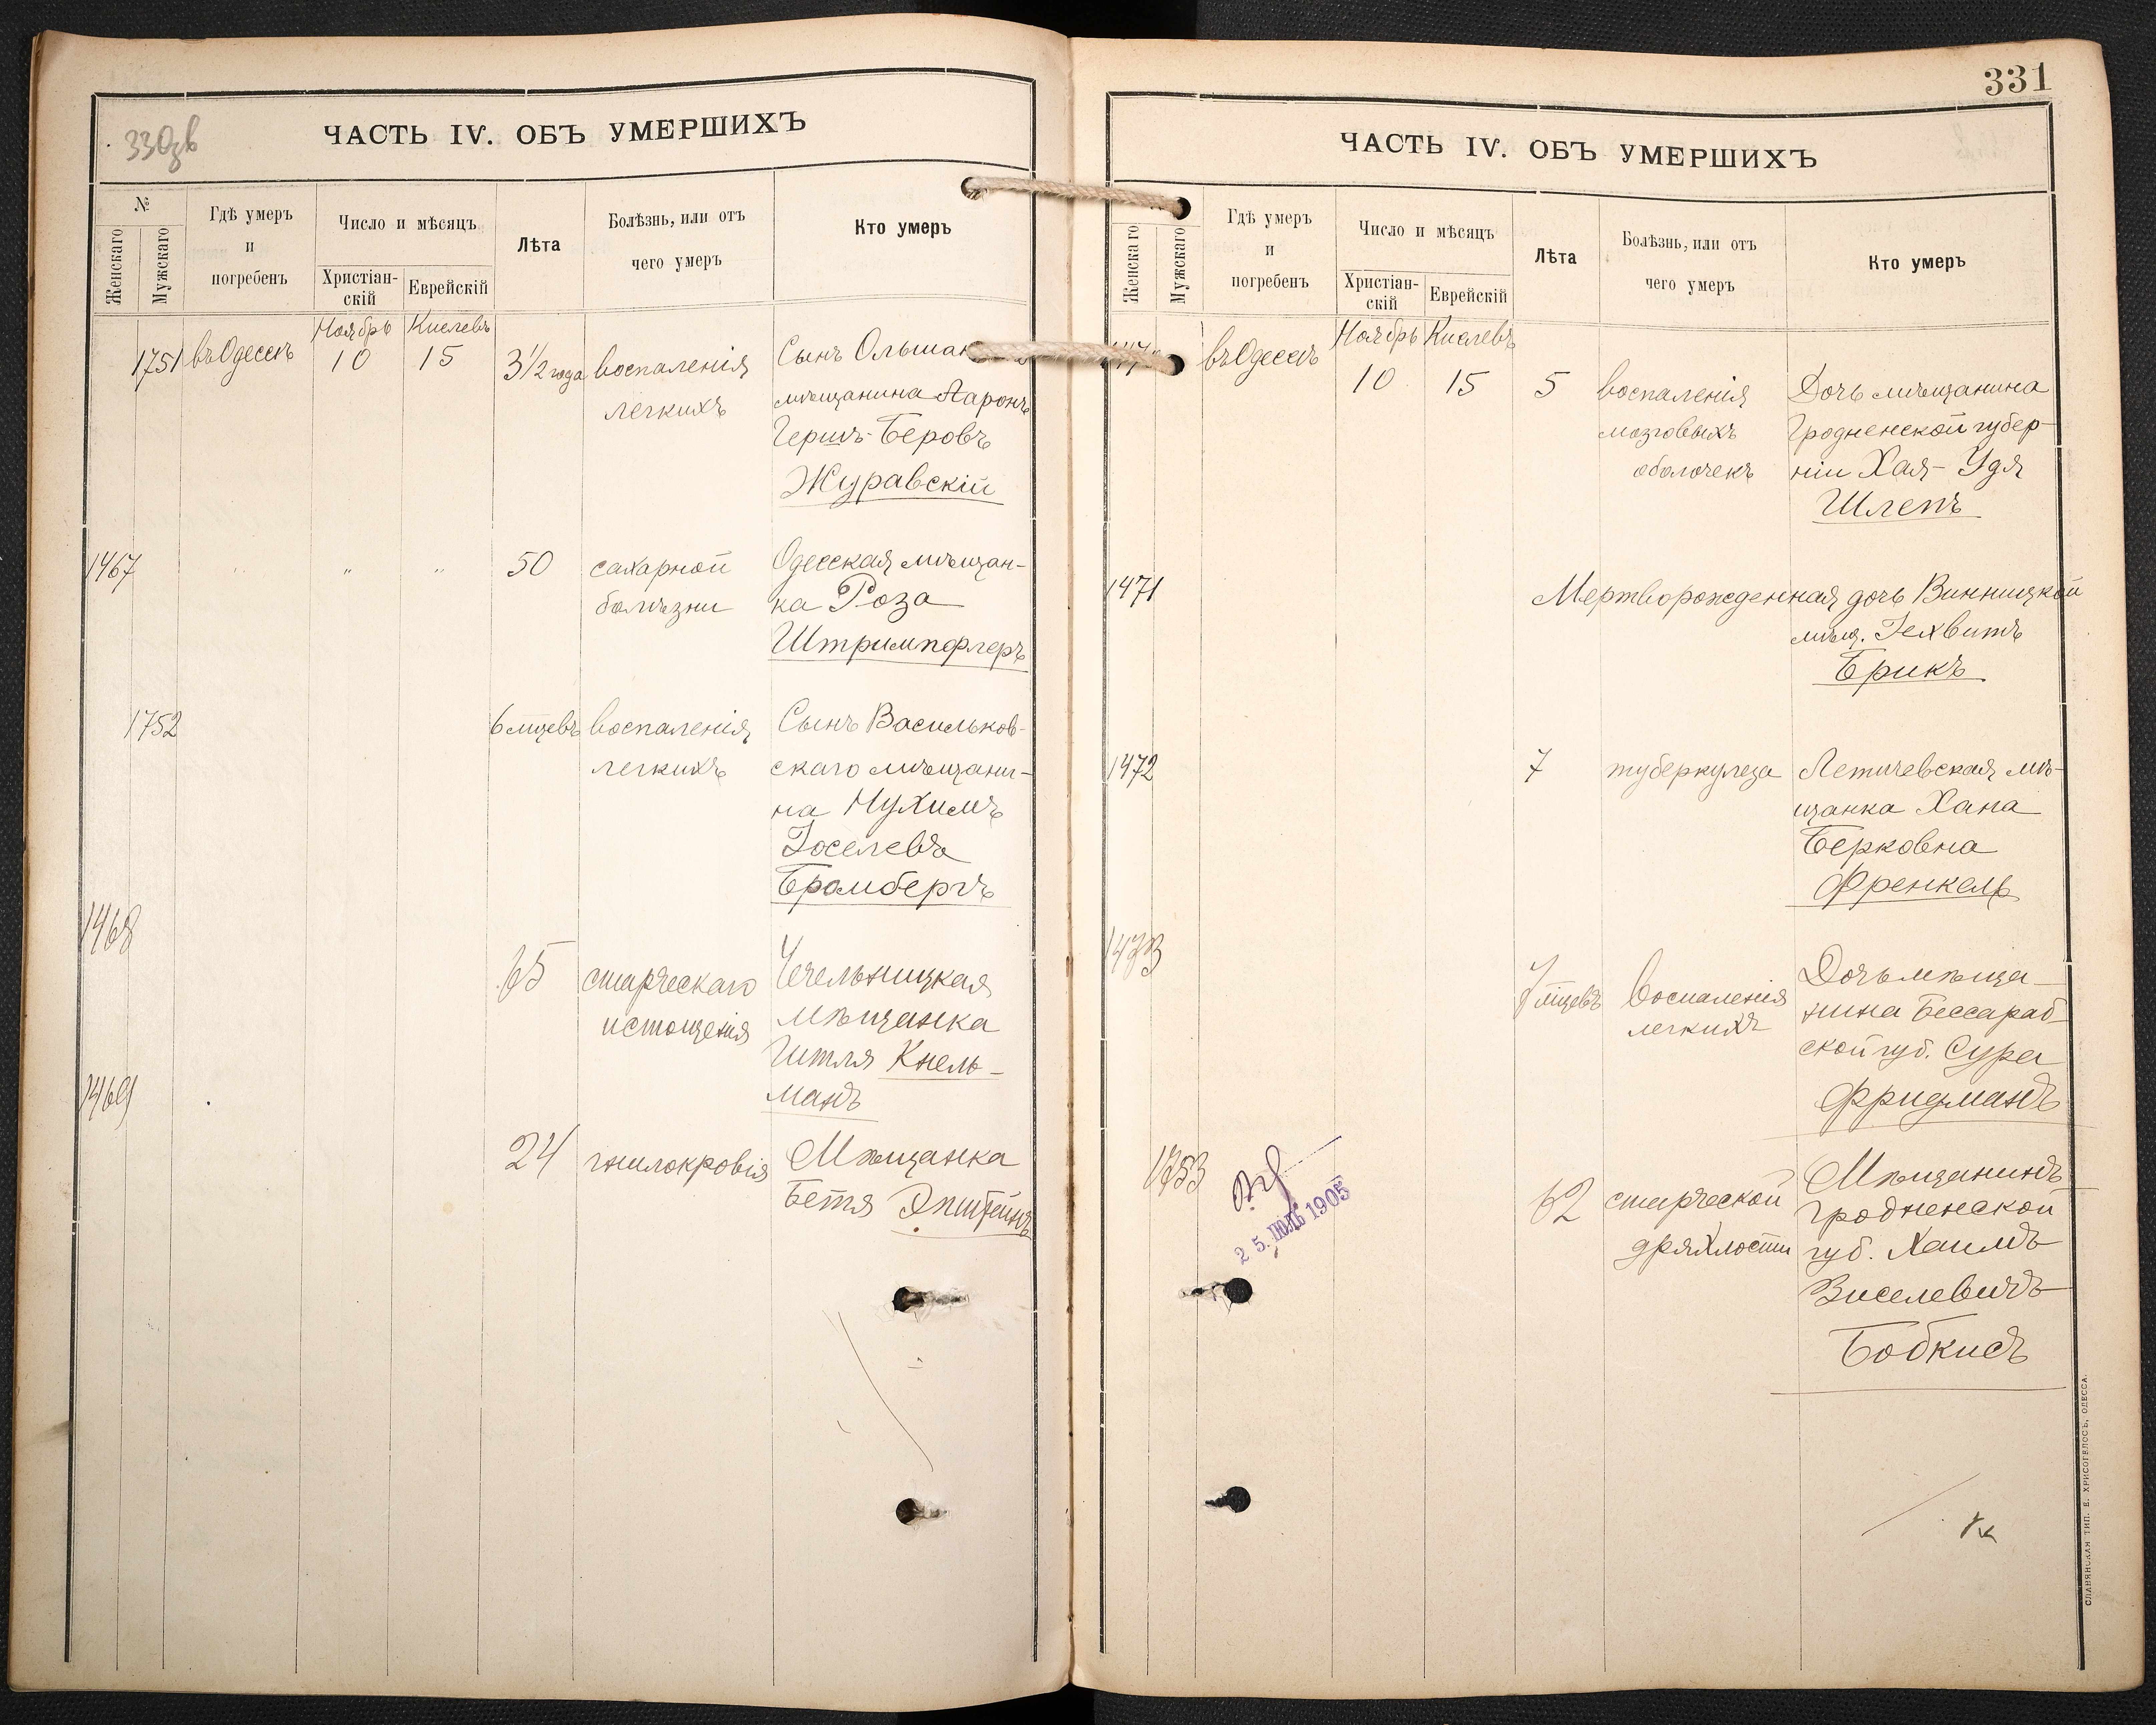 330зв
ЧАСТЬ IV. ОБЪ УМЕРШИХЪ
№
Женскаго
Мужскаго
Гдѣ умеръ
и
погребенъ
Число и мѣсяцъ
Христіан-
скій
Еврейскій
Лѣта
Болѣзнь, или отъ
чего умеръ
Кто умеръ
Ноябрь Кислевъ
1751 въ Одессѣ 10 15 3 1/2 года воспаленія Сынъ
легкихъ мѣщанина Ааронъ
Гершъ-Беровъ
Журавскій
1467 " " " 50 сахарной Одесская мѣщан-
болѣзни ка Роза
Штримпфлеръ
1752 6 мцевъ воспаленія Сынъ Васильков-
легкихъ скаго мѣщани-
на Нухимъ
Іоселевъ
Бромбергъ
1468
65 старческаго Чечельницкая
истощенія мѣщанка
Гитля Кнель-
манъ
1469
24 гнилокровія Мѣщанка
Бетя Эпштейнъ
331
ЧАСТЬ IV. ОБЪ УМЕРШИХЪ
Женскаго
Мужскаго
Гдѣ умеръ
и
погребенъ
Число и мѣсяцъ
Христіан-
скій
Еврейскій
Лѣта
Болѣзнь, или отъ
чего умеръ
Кто умеръ
Ноябрь Кислевъ
въ Одессѣ
10 15 5 воспаленія Дочь мѣщанина
мозговыхъ Гродненской губер-
оболочекъ ніи Хая-Удя
Шлепъ
1471 Мертворожденная дочь Винницкой
мѣщ. Гехвитъ
Ерикъ
1472 7 туберкулеза Летичевская мѣ-
щанка Хана
Берковна
Френкель
1473
7 мцевъ Воспаленія Дочь мѣща-
легкихъ нина Бессараб-
ской губ. Сура
Фридманъ
1753
62 старческой Мѣщанинъ
дряхлости Гродненской
губ. Хаимъ
Зиселевичъ
Бобкисъ
25. ІЮЛЬ 1905
СЛАВЯНСКАЯ ТИП. Е. ХРИСОГЕЛОСЪ, ОДЕССА.